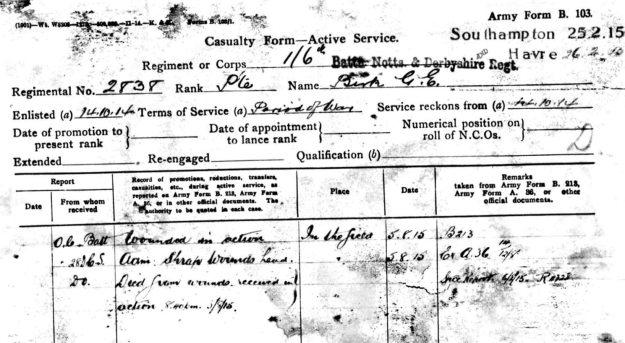 Army Form B. 103.
Southampton 25.2.15
Havre 26.2.15
Casualty Form—Active Service.
Regiment or Corps 1/6th Battn Notts. & Derbyshire Regt.
Regimental No. 2838 Rank Pte Name Birk G.E.
Enlisted (a) 14.10.14 Terms of Service (a) Period of War Service reckons from (a) 14.10.14
Date of promotion to present rank
Date of appointment to lance rank
Numerical position on roll of N.C.Os.
D
Extended Re-engaged Qualification (b)
Report
Date
From whom received
Record of promotions, reductions, transfers, casualties, etc., during active service, as reported on Army Form B. 213, Army Form A. 36, or in other official documents. The authority to be quoted in each case.
Place
Date
Remarks
taken from Army Form B. 213, Army Form A. 36, or other official documents.
O.C. Batt Wounded in action In the field 5.8.15 B213
Adm. Shrap Wounds head. 5.8.15 A 36
Do. Died from wounds received in
action